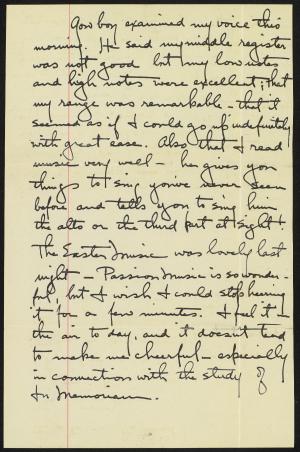 Gow boy examined my voice this
morning. He said my middle register
was not good but my low notes
and high notes were excellent; that
my range was remarkable - that it
seemed as if I could go up indefinitely
with great ease. Also that I read
music very well - he gives you
things to sing you've never seen
before and tells you to sing him
the alto or the third part at sight!
The Easter music was lovely last
night - Passion Music is so wonder-
ful, but I wish I could stop hearing
it for a few minutes. I feel it -
the air to day, and it doesn't tend
to make me cheerful - especially
in connections with the study of
In Memoriam.